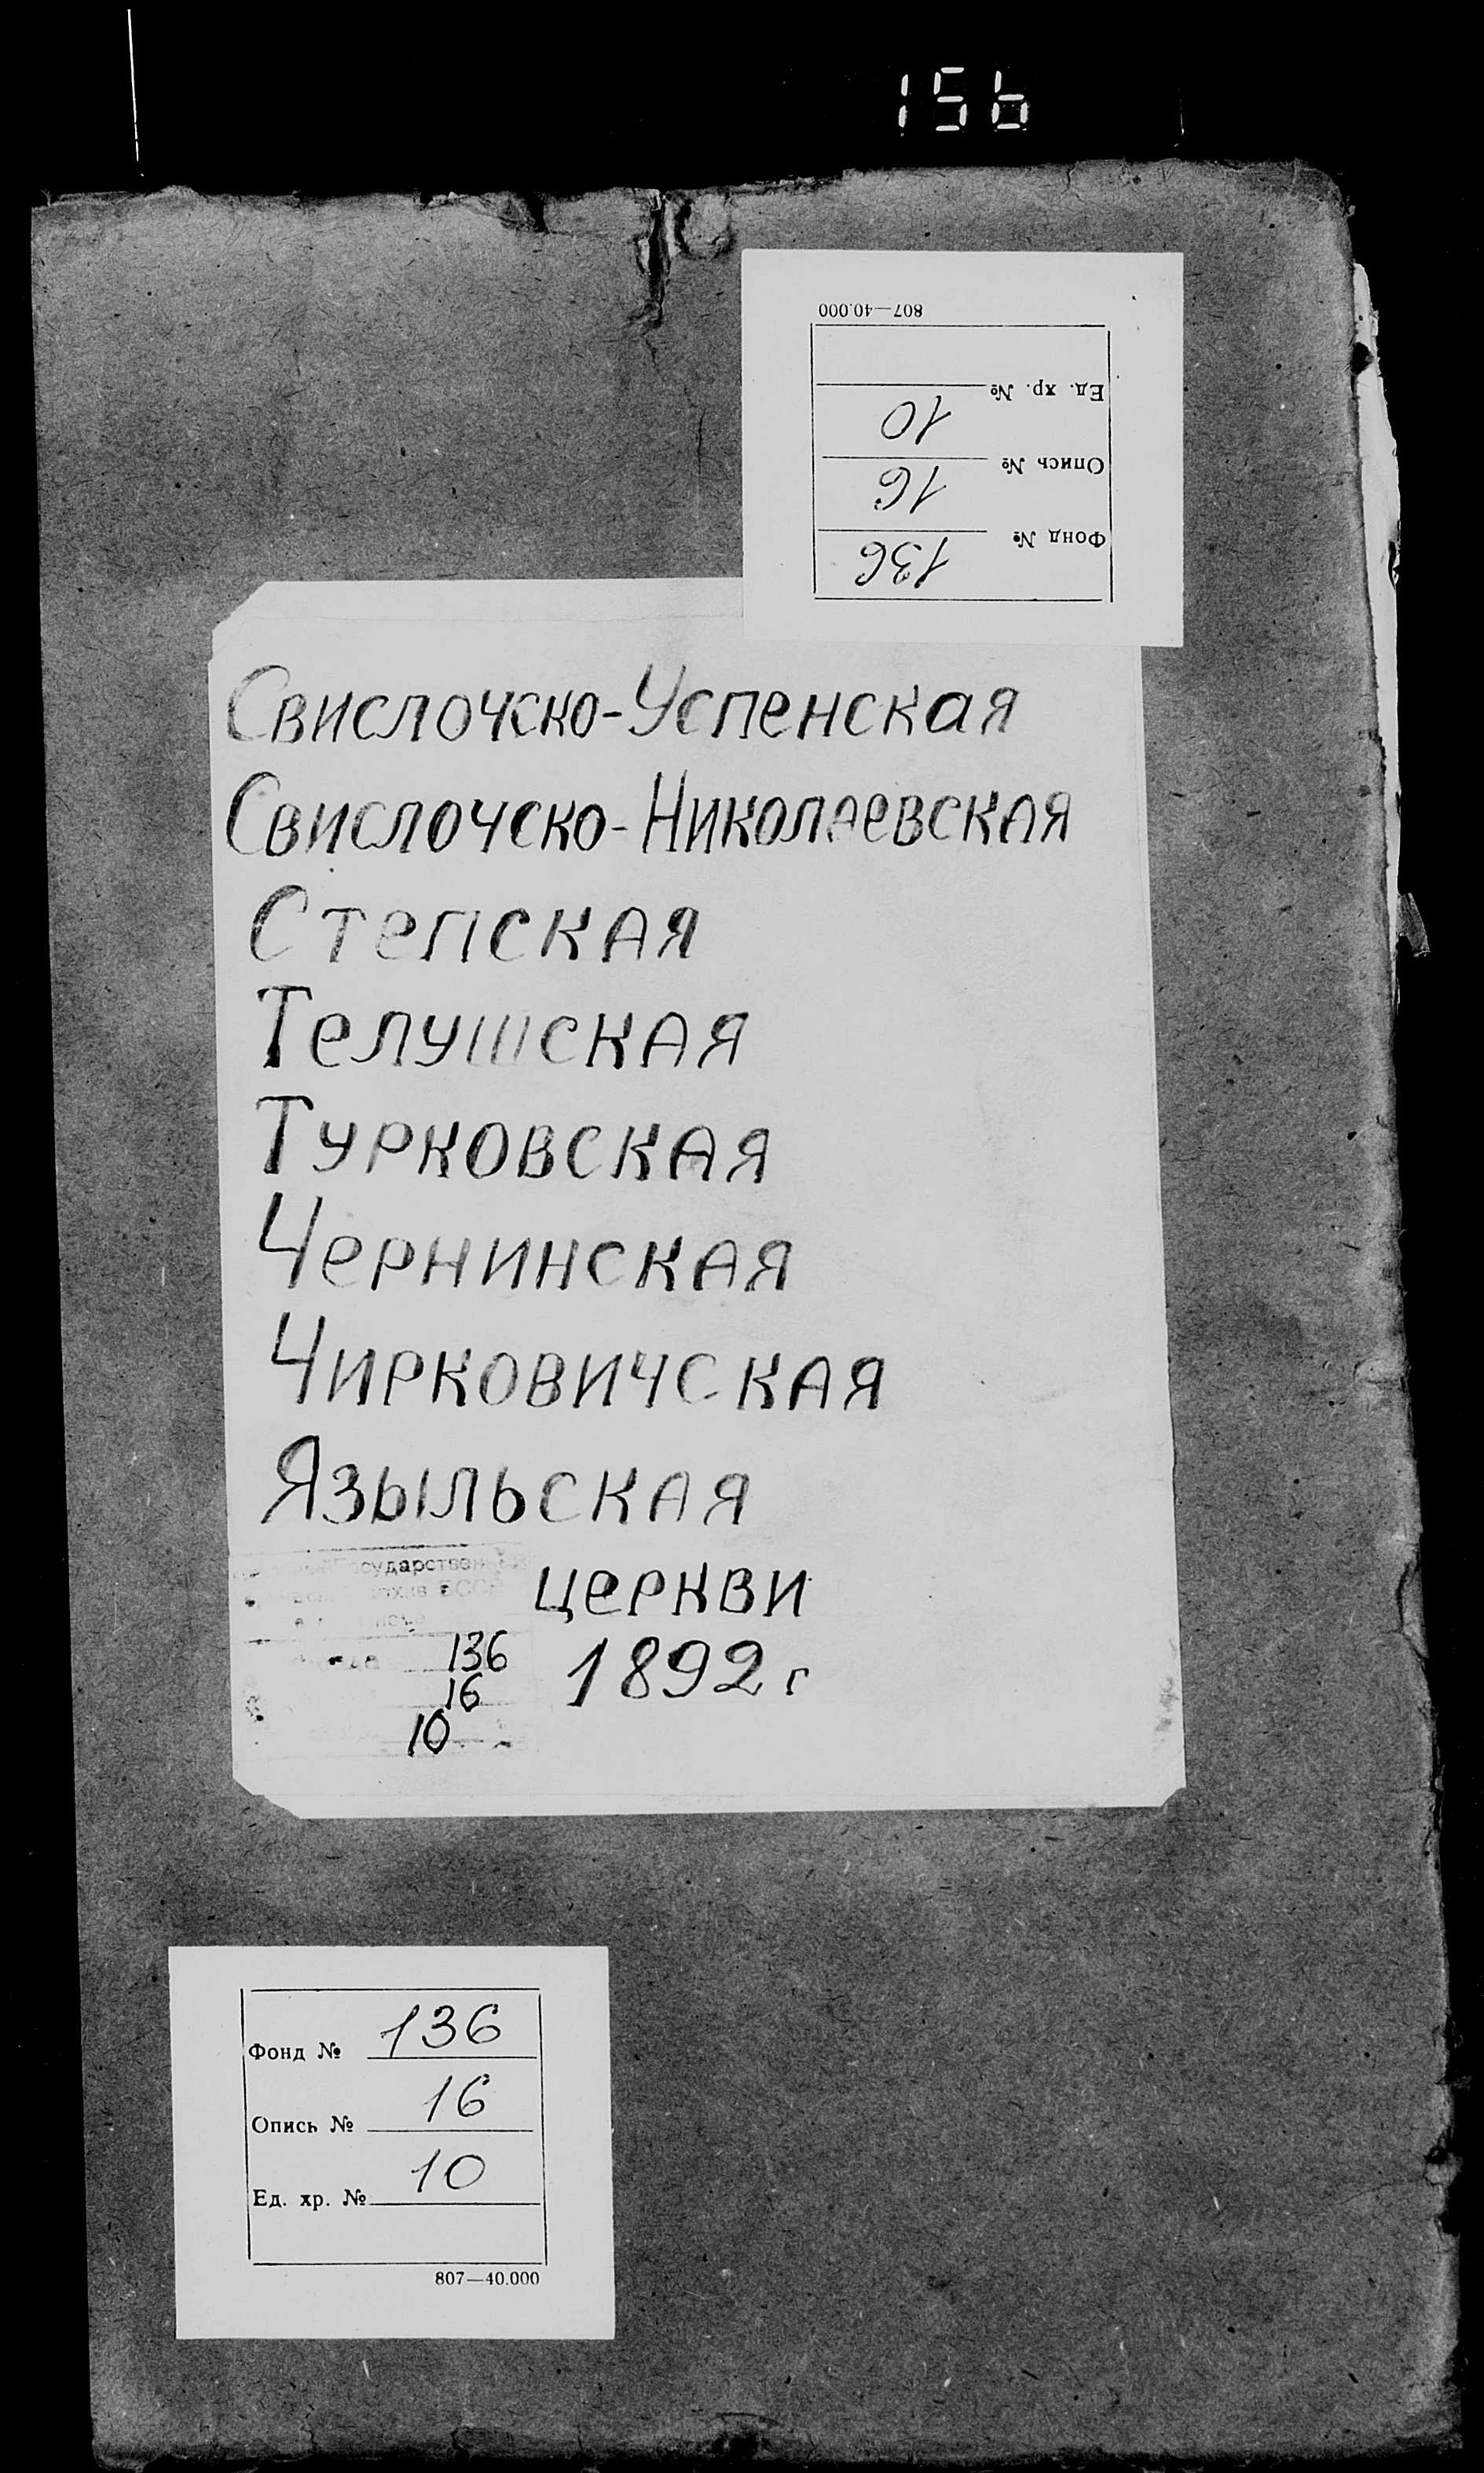 156
807—40.000
Ед. хр. № 10
Опись № 16
Фонд № 136
Свислочско-Успенская
Свислочско-Николаевская
Степская
Телушская
Турковская
Чернинская
Чирковичская
Языльская
церкви
1892 г
БССР
136
16
10
Фонд № 136
Опись № 16
Ед. хр. № 10
807—40.000